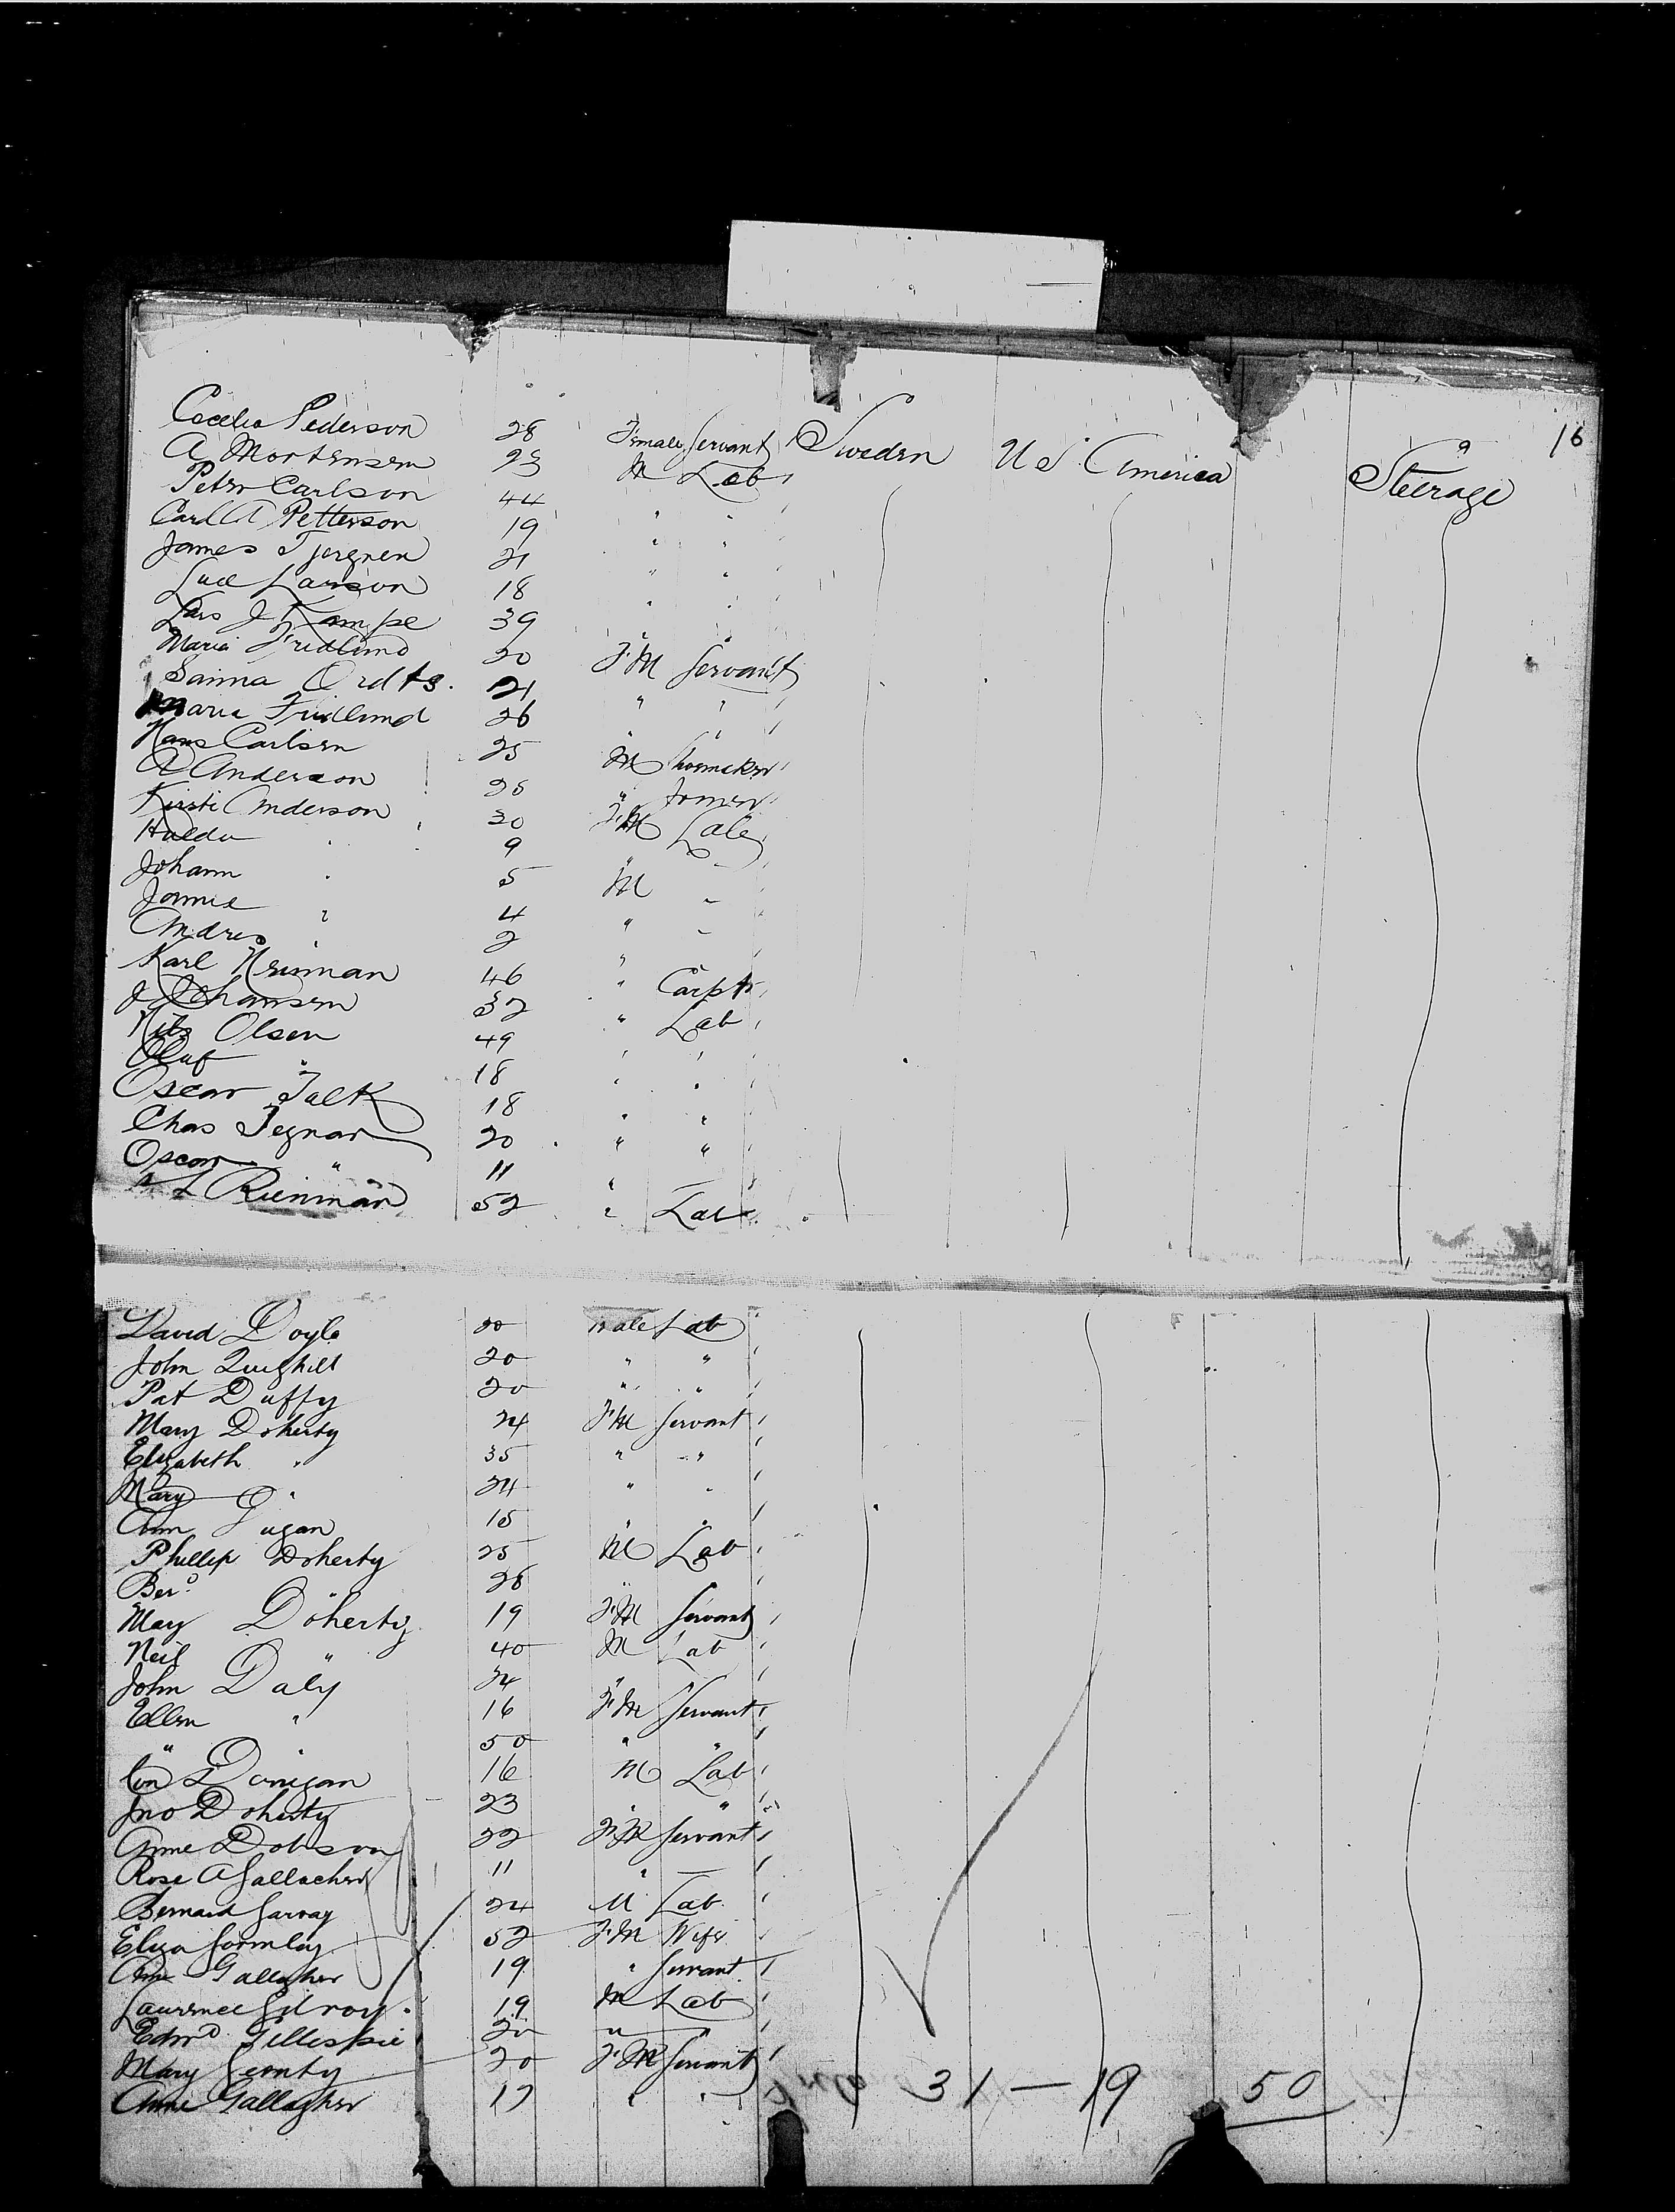 16
Cecelia Pederson 28 Female Servant Sweden U S America Steerage
A Mortensen 23 M Lab
Peter Carlson 44 " "
Carl A Petterson 19 " "
James 21 " "
Larson 18 " "
Lars J Kampe 39 " "
Maria Fridlund 20 F.M Servant
Sanna 21 " "
Maria Fridlund 26 " "
Hans Carlsen 25 M Shoemaker
A Anderson 28 "
Kirsti Anderson 30 F.M
Hulda " 9 " -
Johann " 5 M -
" 4 " -
Andres " 2 "
Karl 46 " Carptr
J Johansen 32 " Lab
Nils Olsen 49 " "
Oluf " 18 " "
Oscar Falk 18 " "
Chas Tegnar 20 " "
Oscar " 11 " -
52 " Lab
David Doyle 20 Male Lab
John 20 " "
Pat Duffy 20 " "
Mary Doherty 24 F.M Servant
Elizabeth " 35 " "
Mary " 24 " "
Ann 18 " "
Phillip Doherty 25 M Lab
Ber.d " 28 " "
Mary Doherty 19 F.M Servant
Neil " 40 M Lab
John Daly 24 " "
Ellen " 16 F.M Servant
" " 50 " "
Con Donigan 16 M Lab
Jno Doherty 23 " "
Anne Dobson 22 F.M Servant
Rose A Gallacher 11 " -
Bernard Garvay 24 M Lab
Eliza Gormley 52 F.M Wife
Ann Gallagher 19 " Servant
Laurence Gilroy 19 M Lab
Edwd Gillespie 20 "
Mary 20 F.M Servant
Annie Gallagher 17 " " 31 — 19 50